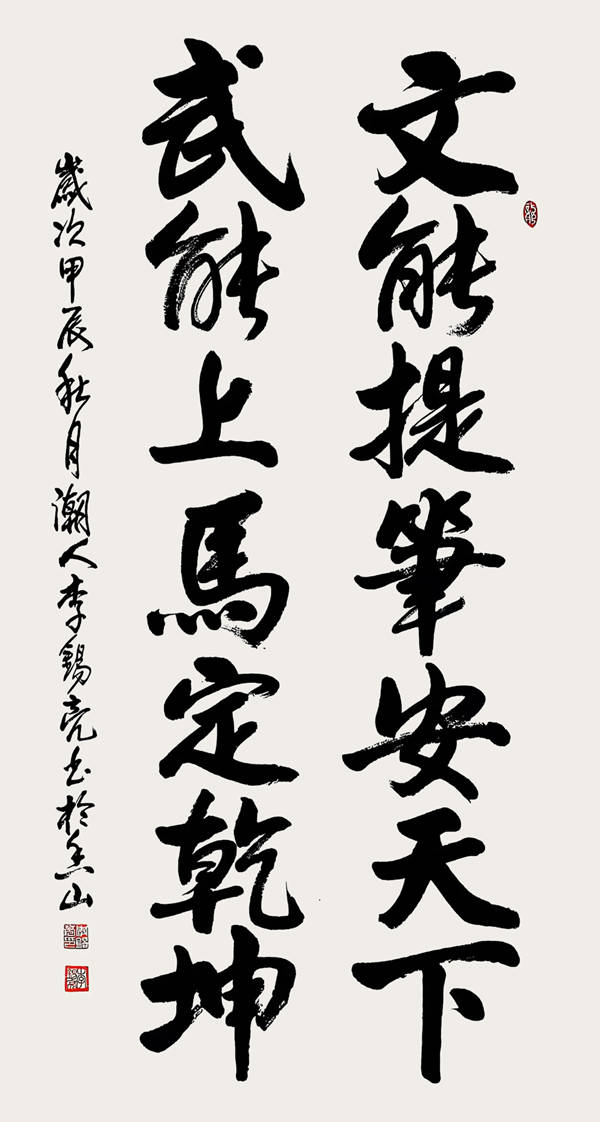 文能提筆安天下
武能上馬定乾坤
歲次甲辰秋月潮人李錫亮書於香山